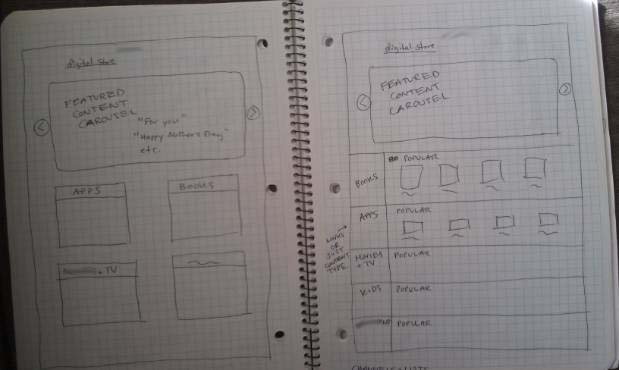 digital store
FEATURED
CONTENT
CAROUSEL
"For you"
"Happy Mother's Day"
etc.
APPS
BOOKS
+ TV
digital store
FEATURED
CONTENT
CAROUSEL
BOOKS
POPULAR
APPS
POPULAR
LINKS
OR
JUST
CONTENT
TYPE
MOVIES
+ TV
POPULAR
KIDS
POPULAR
POPULAR